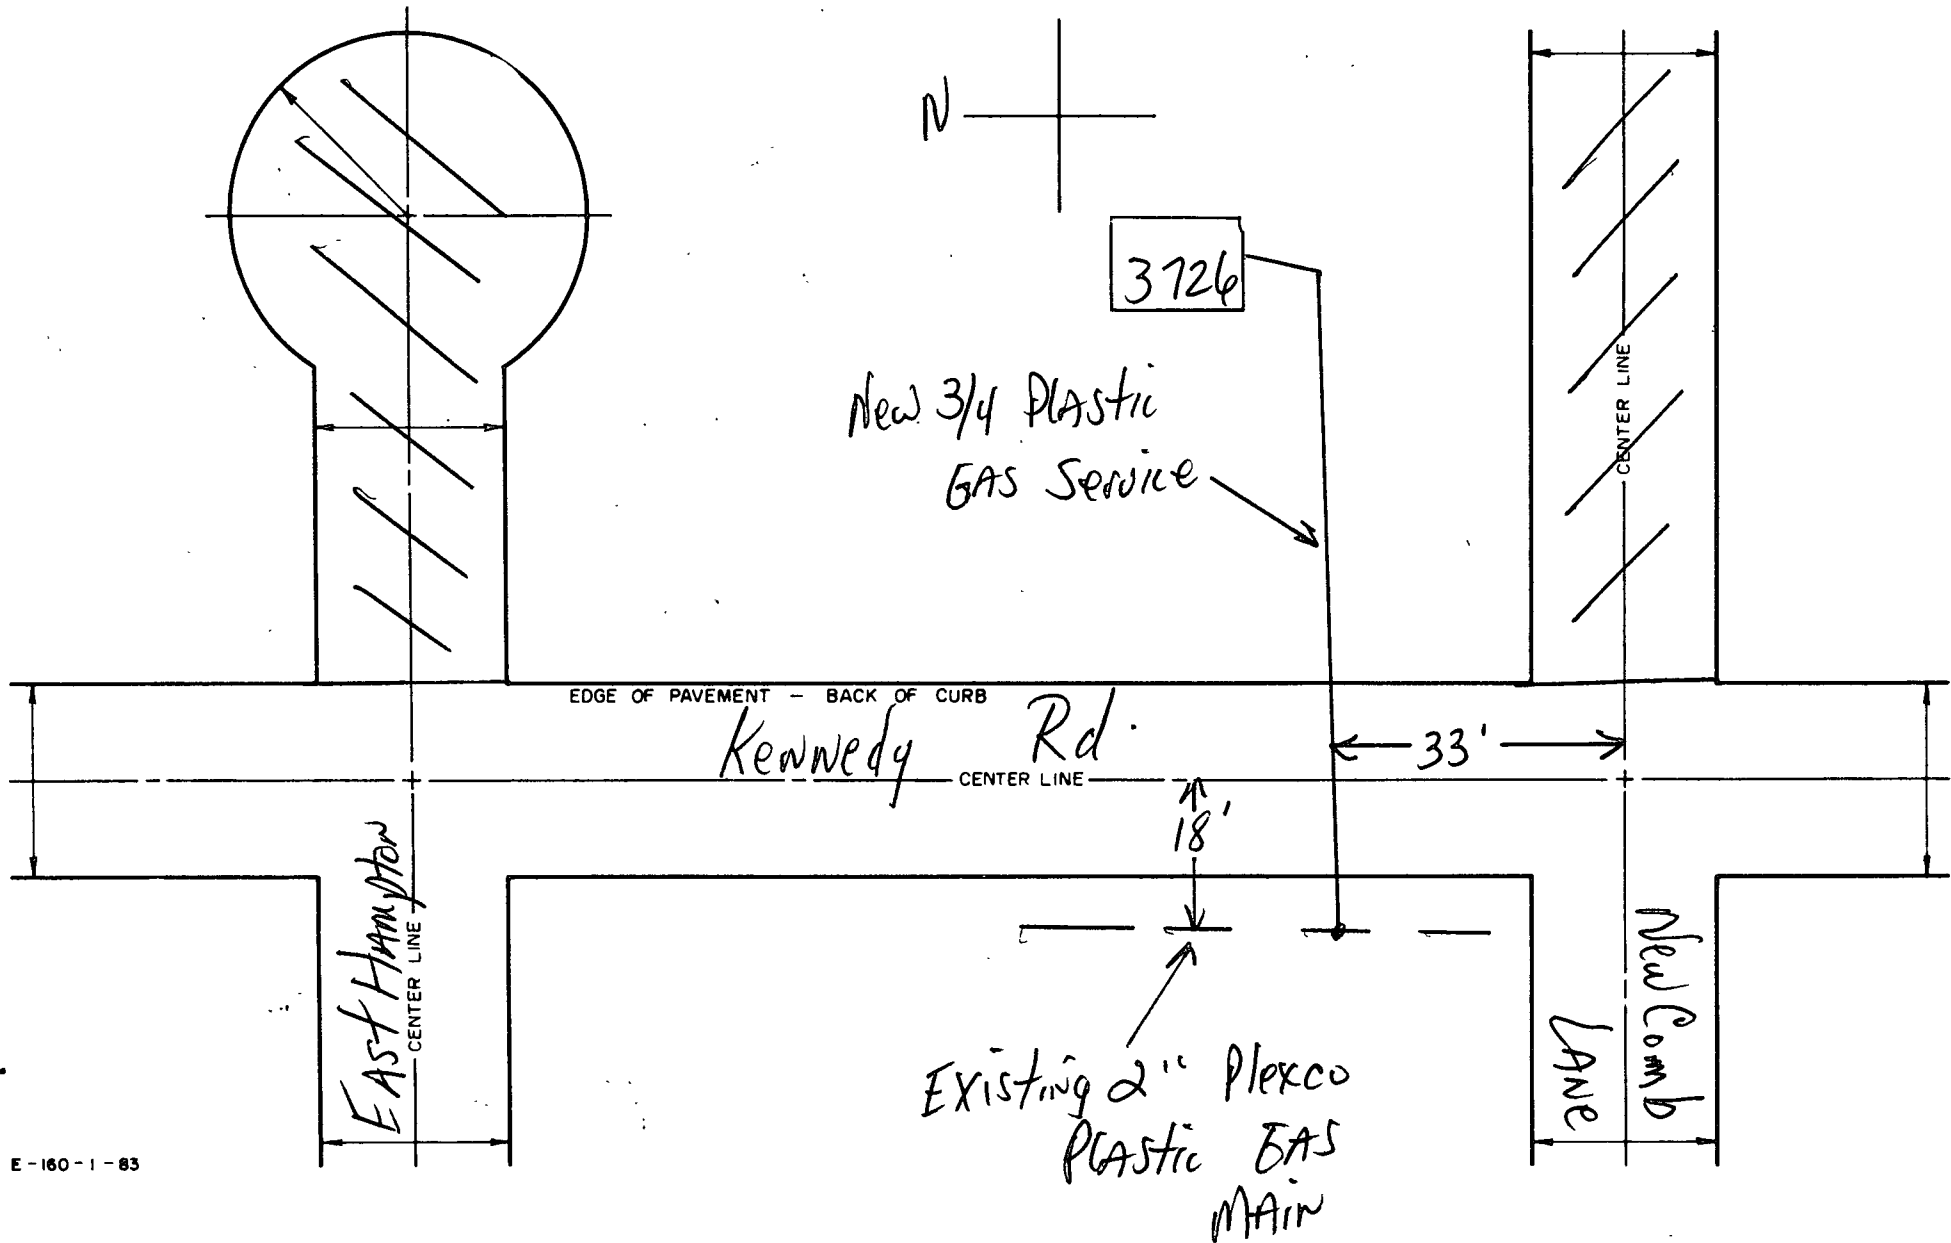 N
3726
New 3/4 Plastic
GAS Service
CENTER LINE
EDGE OF PAVEMENT — BACK OF CURB
Kennedy Rd.
33'
CENTER LINE
18'
East Hampton
CENTER LINE
New Comb
Lane
Existing 2" Plexco
Plastic GAS
Main
E-160-1-83